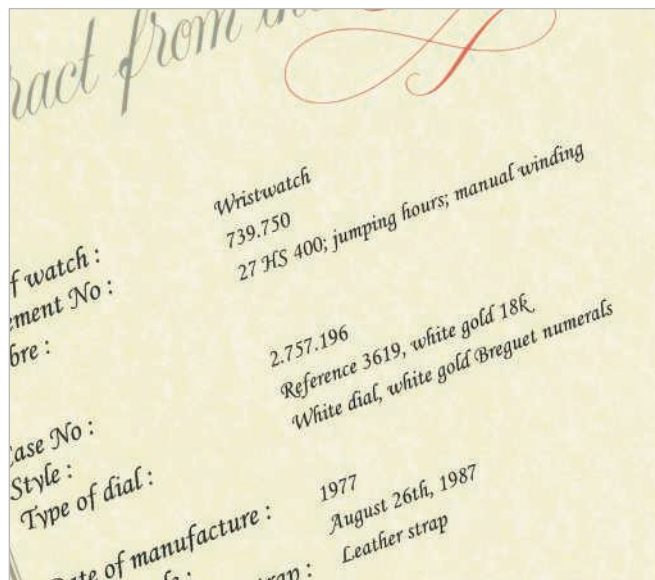 ract from the
f watch : Wristwatch
ement No : 739.750
bre : 27 HS 400; jumping hours; manual winding
ase No : 2.757.196
Style : Reference 3619, white gold 18k
Type of dial : White dial, white gold Breguet numerals
ate of manufacture : 1977
August 26th, 1987
trap : Leather strap